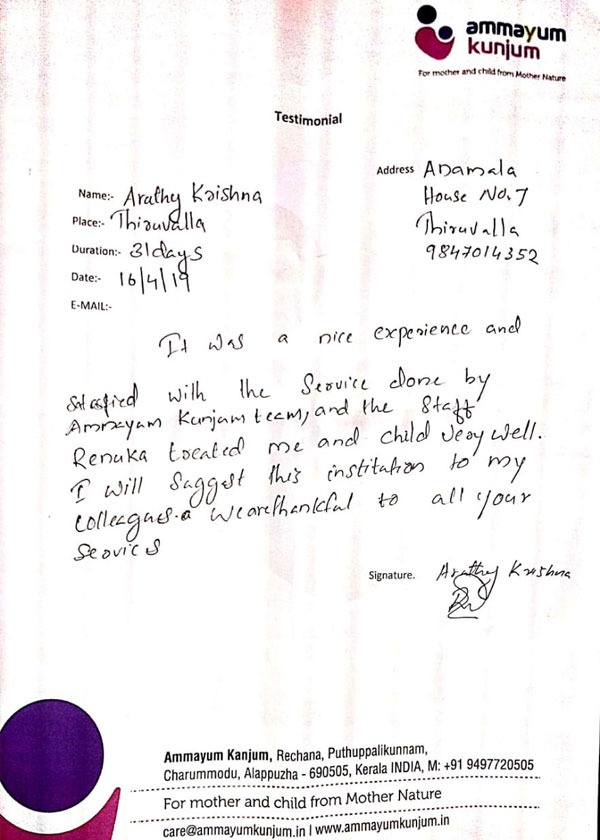 ammayum
kunjum
For mother and child from Mother Nature
Testimonial
Name:- Arathy Krishna
Place:- Thiruvalla
Duration:- 31days
Date:- 16/4/19
E-MAIL:-
Address Adamala
House No.7
Thiruvalla
9847014352
It was a nice experience and
satisfied with the Service done by
Ammayum Kunjam team, and the Staff
Renuka treated me and child very well.
I will Suggest this institution to my
colleagues. we are thankful to all your
Services
Signature. Arathy Krishna
Ammayum Kanjum, Rechana, Puthuppalikunnam,
Charummodu, Alappuzha - 690505, Kerala INDIA, M: +91 9497720505
For mother and child from Mother Nature
care@ammayumkunjum.in | www.ammayumkunjum.in